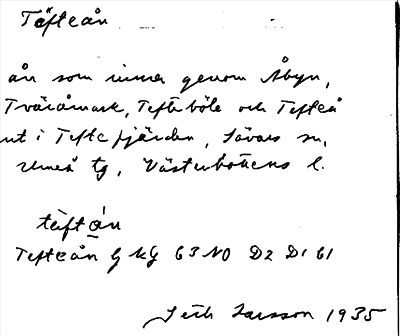 Täfteån
ån som rinner genom Åbyn,
Tväråmark, Tefteböle och Tefteå
ut i Teftefjärden, Sävars sn,
Umeå tg, Västerbottens l.
täftån
Tefteån G kg 63 NO D2 D1 61
Larsson 1935